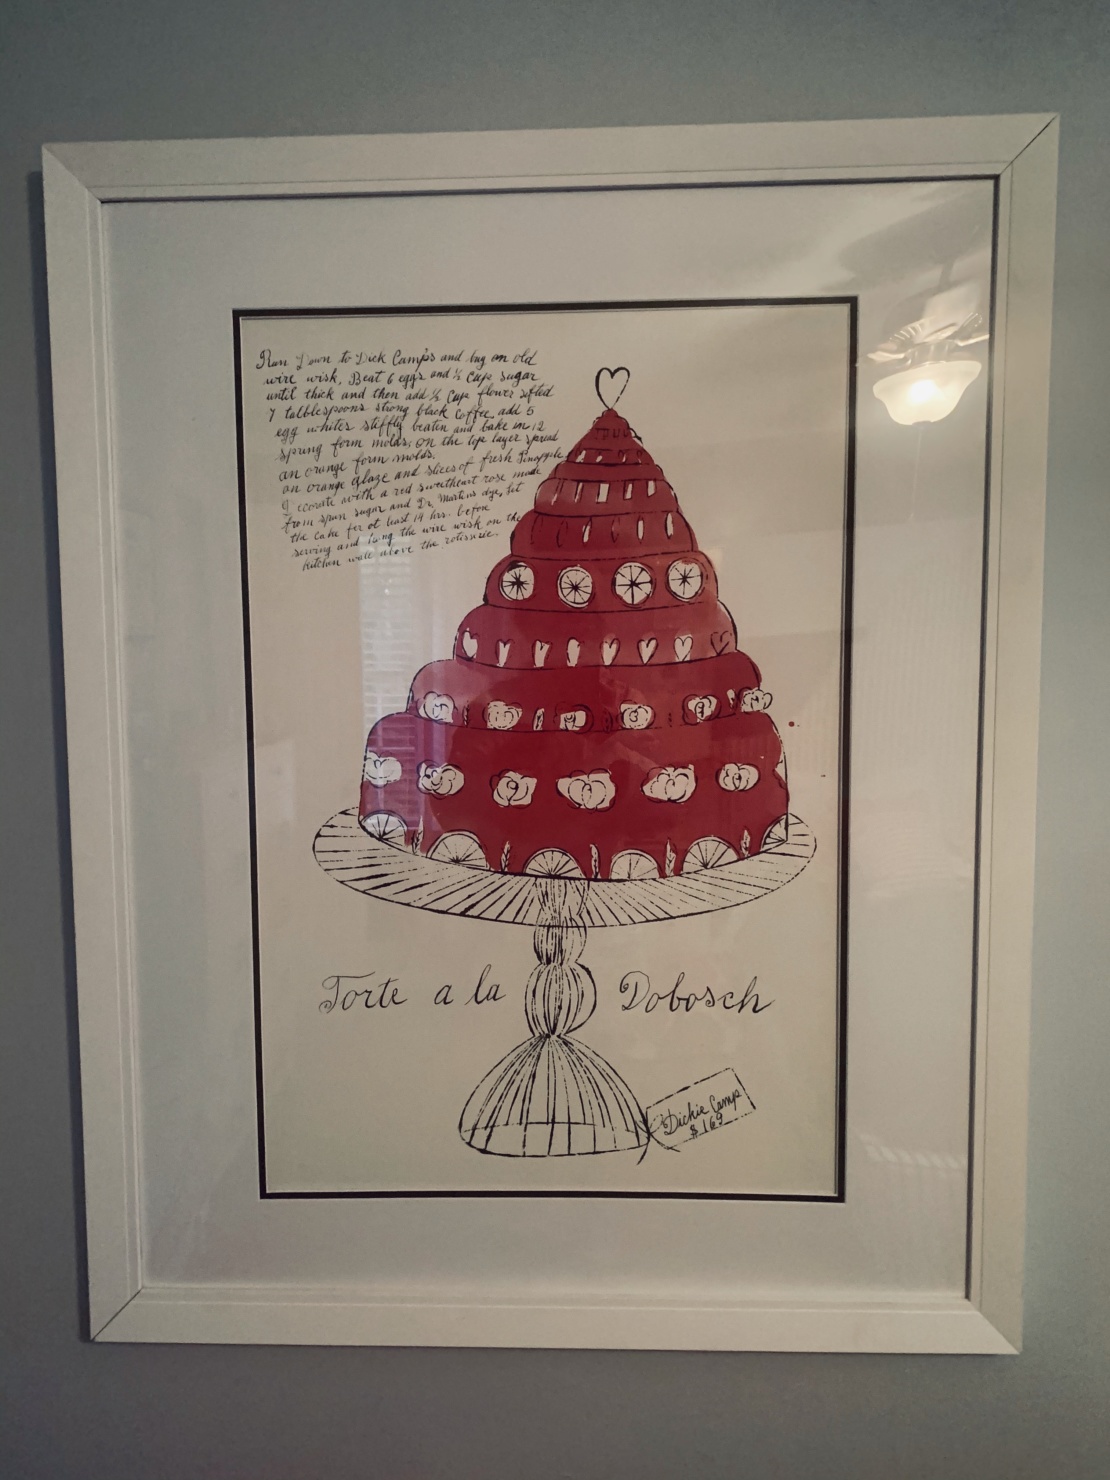 Run Down to Dick Camp's and buy an old
wire wisk, Beat 6 eggs and ½ Cup sugar
until thick and then add ½ Cup flower sifted
7 talblespoons strong black Coffee, add 5
egg whites stiffly beatin and bake in 12
spring form molds; on the top layer spread
an orange form molds.
an orange glaze and slices of fresh Pineapple
decorate with a red sweetheart rose made
from spun sugar and Dr. Martins dye, let
the cake fer at least 14 hrs. before
serving and hang the wire wisk on the
kitchen wall above the rotisserie.
Torte a la Dobosch
Dickie Camp
$ 169